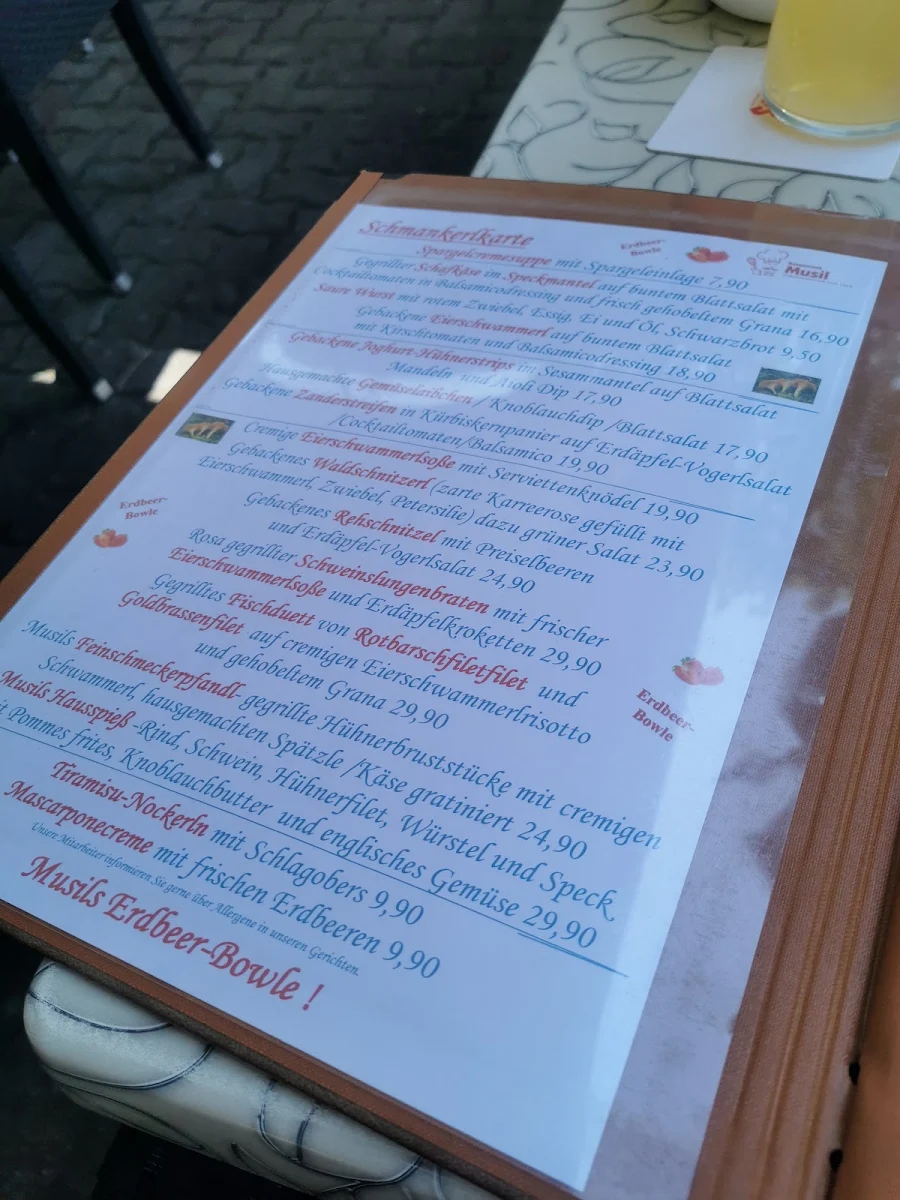 Schmankerlkarte
Erdbeer-
Bowle
Musil
Spargelcremesuppe mit Spargeleinlage 7,90
Gegrillter Schafkäse im Speckmantel auf buntem Blattsalat mit
Cocktailtomaten in Balsamicodressing und frisch gehobeltem Grana 16,90
Saure Wurst mit rotem Zwiebel, Essig, Ei und Öl, Schwarzbrot 9,50
Gebackene Eierschwammerl auf buntem Blattsalat
mit Kirschtomaten und Balsamicodressing 18,90
Gebackene Joghurt-Hühnerstrips im Sesammantel auf Blattsalat
Mandeln und Aioli Dip 17,90
Hausgemachte Gemüselaibchen / Knoblauchdip /Blattsalat 17,90
Gebackene Zanderstreifen in Kürbiskernpanier auf Erdäpfel-Vogerlsalat
/Cocktailtomaten/Balsamico 19,90
Cremige Eierschwammerlsoße mit Serviettenknödel 19,90
Gebackenes Waldschnitzerl (zarte Karreerose gefüllt mit
Eierschwammerl, Zwiebel, Petersilie) dazu grüner Salat 23,90
Gebackenes Rehschnitzel mit Preiselbeeren
und Erdäpfel-Vogerlsalat 24,90
Erdbeer-
Bowle
Rosa gegrillter Schweinslungenbraten mit frischer
Eierschwammerlsoße und Erdäpfelkroketten 29,90
Gegrilltes Fischduett von Rotbarschfiletfilet und
Goldbrassenfilet auf cremigen Eierschwammerlrisotto
und gehobeltem Grana 29,90
Erdbeer-
Bowle
Musils Feinschmeckerpfandl gegrillte Hühnerbruststücke mit cremigen
Schwammerl, hausgemachten Spätzle /Käse gratiniert 24,90
Musils Hausspieß -Rind, Schwein, Hühnerfilet, Würstel und Speck
Pommes frites, Knoblauchbutter und englisches Gemüse 29,90
Tiramisu-Nockerln mit Schlagobers 9,90
Mascarponecreme mit frischen Erdbeeren 9,90
Unsere Mitarbeiter informieren Sie gerne über Allergene in unseren Gerichten.
Musils Erdbeer-Bowle !